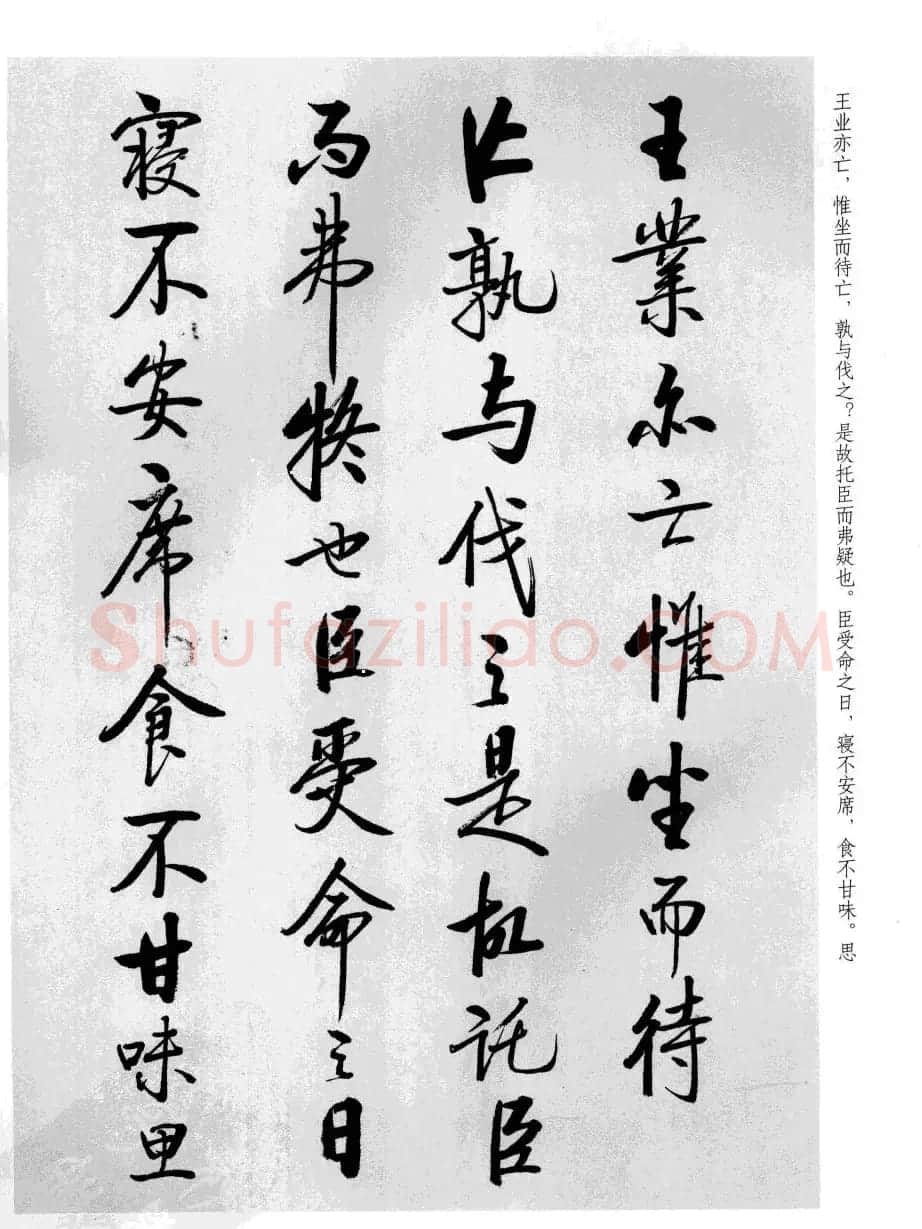 王业亦亡，惟坐而待亡，孰与伐之？是故托臣而弗疑也。臣受命之日，寝不安席，食不甘味。思
王業亦亡惟坐而待
亡孰与伐之是故託臣
而弗疑也臣受命之日
寝不安席食不甘味思
Shufaziliao.COM